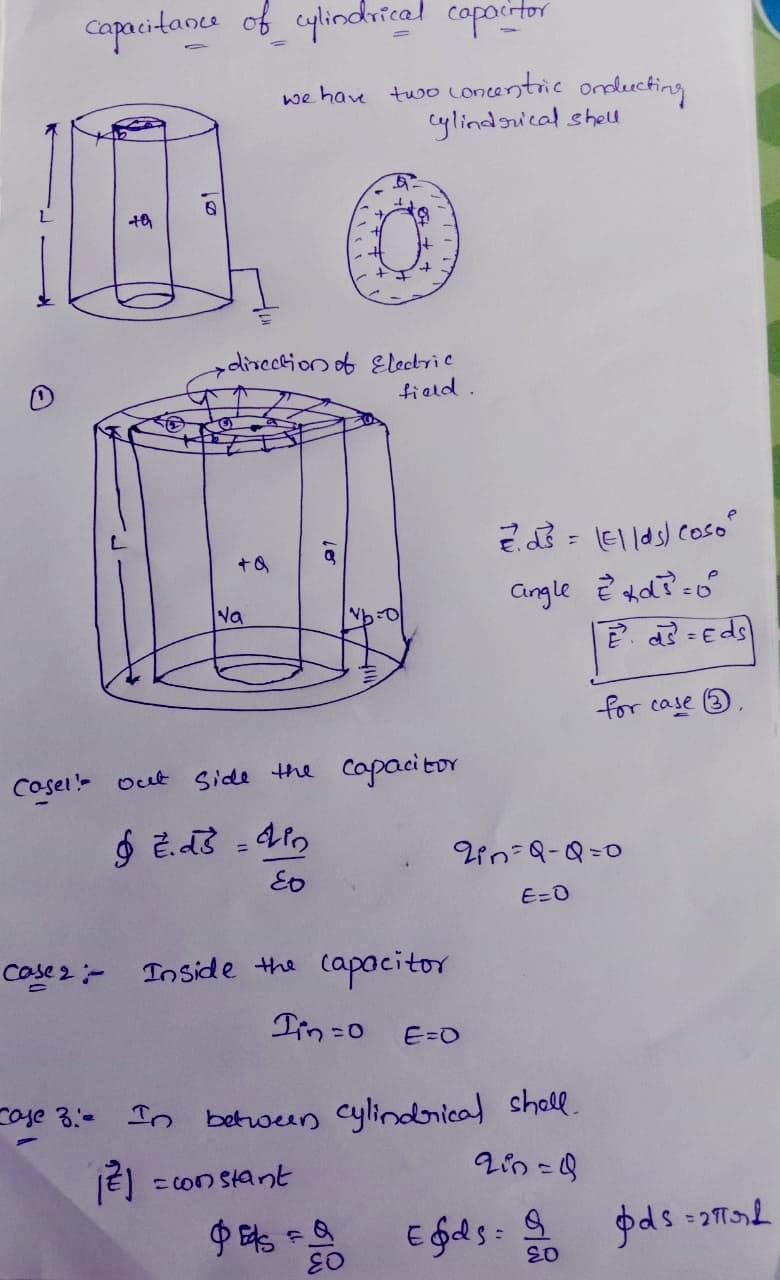 capacitance of cylindrical capacitor
we have two concentric onducting
cylindrical shell
L
b
+Q
-Q
-Q
+Q
①
direction of Electric
field.
②
③
a
b
①
L
+Q
-Q
Va
Vb=0
E⃗.ds⃗ = |E||ds| cos0°
angle E⃗ & ds⃗ = 0°
E⃗. ds⃗ = Eds
for case ③.
Case1:- out side the capacitor
∮ E⃗.ds⃗ = qin/ε0
qin=Q-Q=0
E=0
case2:- Inside the capacitor
Iin=0 E=0
case 3:- In between cylindrical shell.
|E⃗| = constant
qin=Q
∮Eds = Q/ε0 E∮ds = Q/ε0 ∮ds = 2πrL